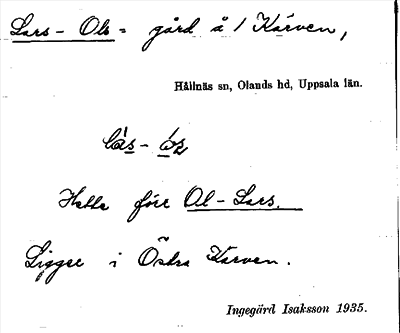 Lars-Ols-gård å / Kärven,
Hållnäs sn, Olands hd, Uppsala län.
Hette före Ol-Lars.
Ligger i Östra Kärven.
Ingegärd Isaksson 1935.